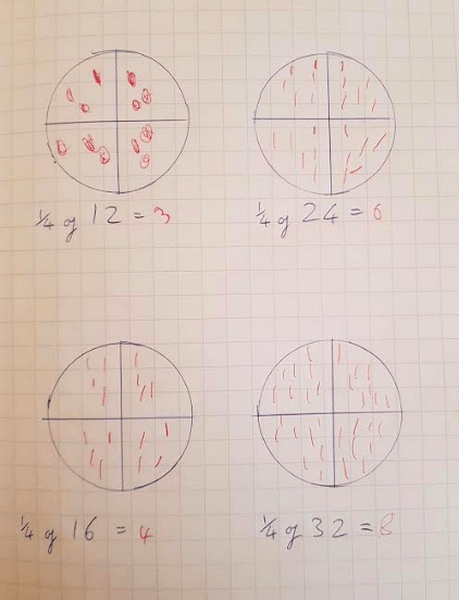 ¼ of 12 = 3
¼ of 24 = 6
¼ of 16 = 4
¼ of 32 = 8